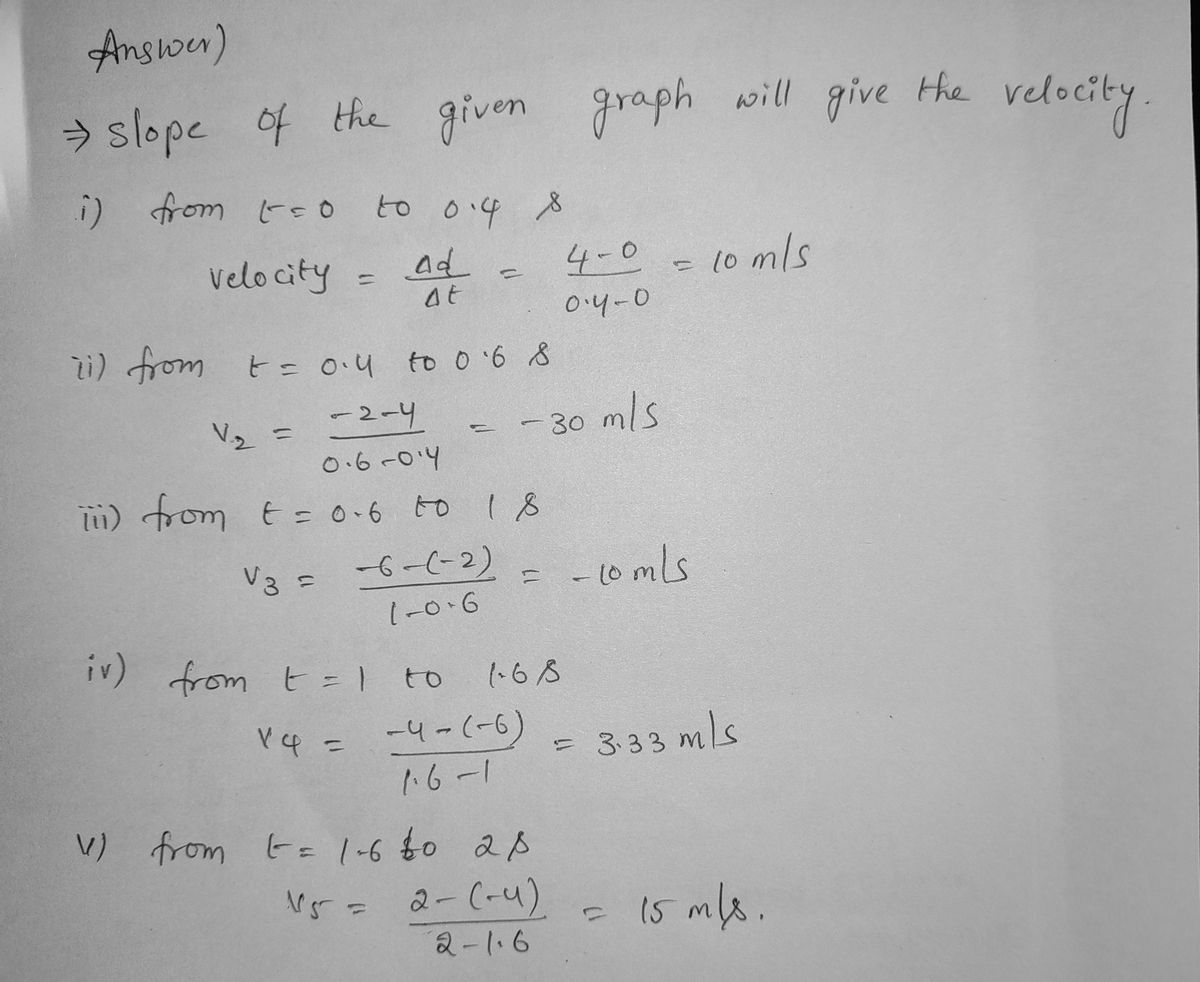 Answer)
⇒ slope of the given graph will give the velocity.
i) from t=0 to 0.4 s
velocity = Δd/Δt = (4-0)/(0.4-0) = 10 m/s
ii) from t = 0.4 to 0.6 s
V2 = (-2-4)/(0.6-0.4) = -30 m/s
iii) from t = 0.6 to 1 s
V3 = (-6-(-2))/(1-0.6) = -10 m/s
iv) from t = 1 to 1.6 s
V4 = (-4-(-6))/(1.6-1) = 3.33 m/s
v) from t = 1.6 to 2 s
V5 = (2-(-4))/(2-1.6) = 15 m/s.